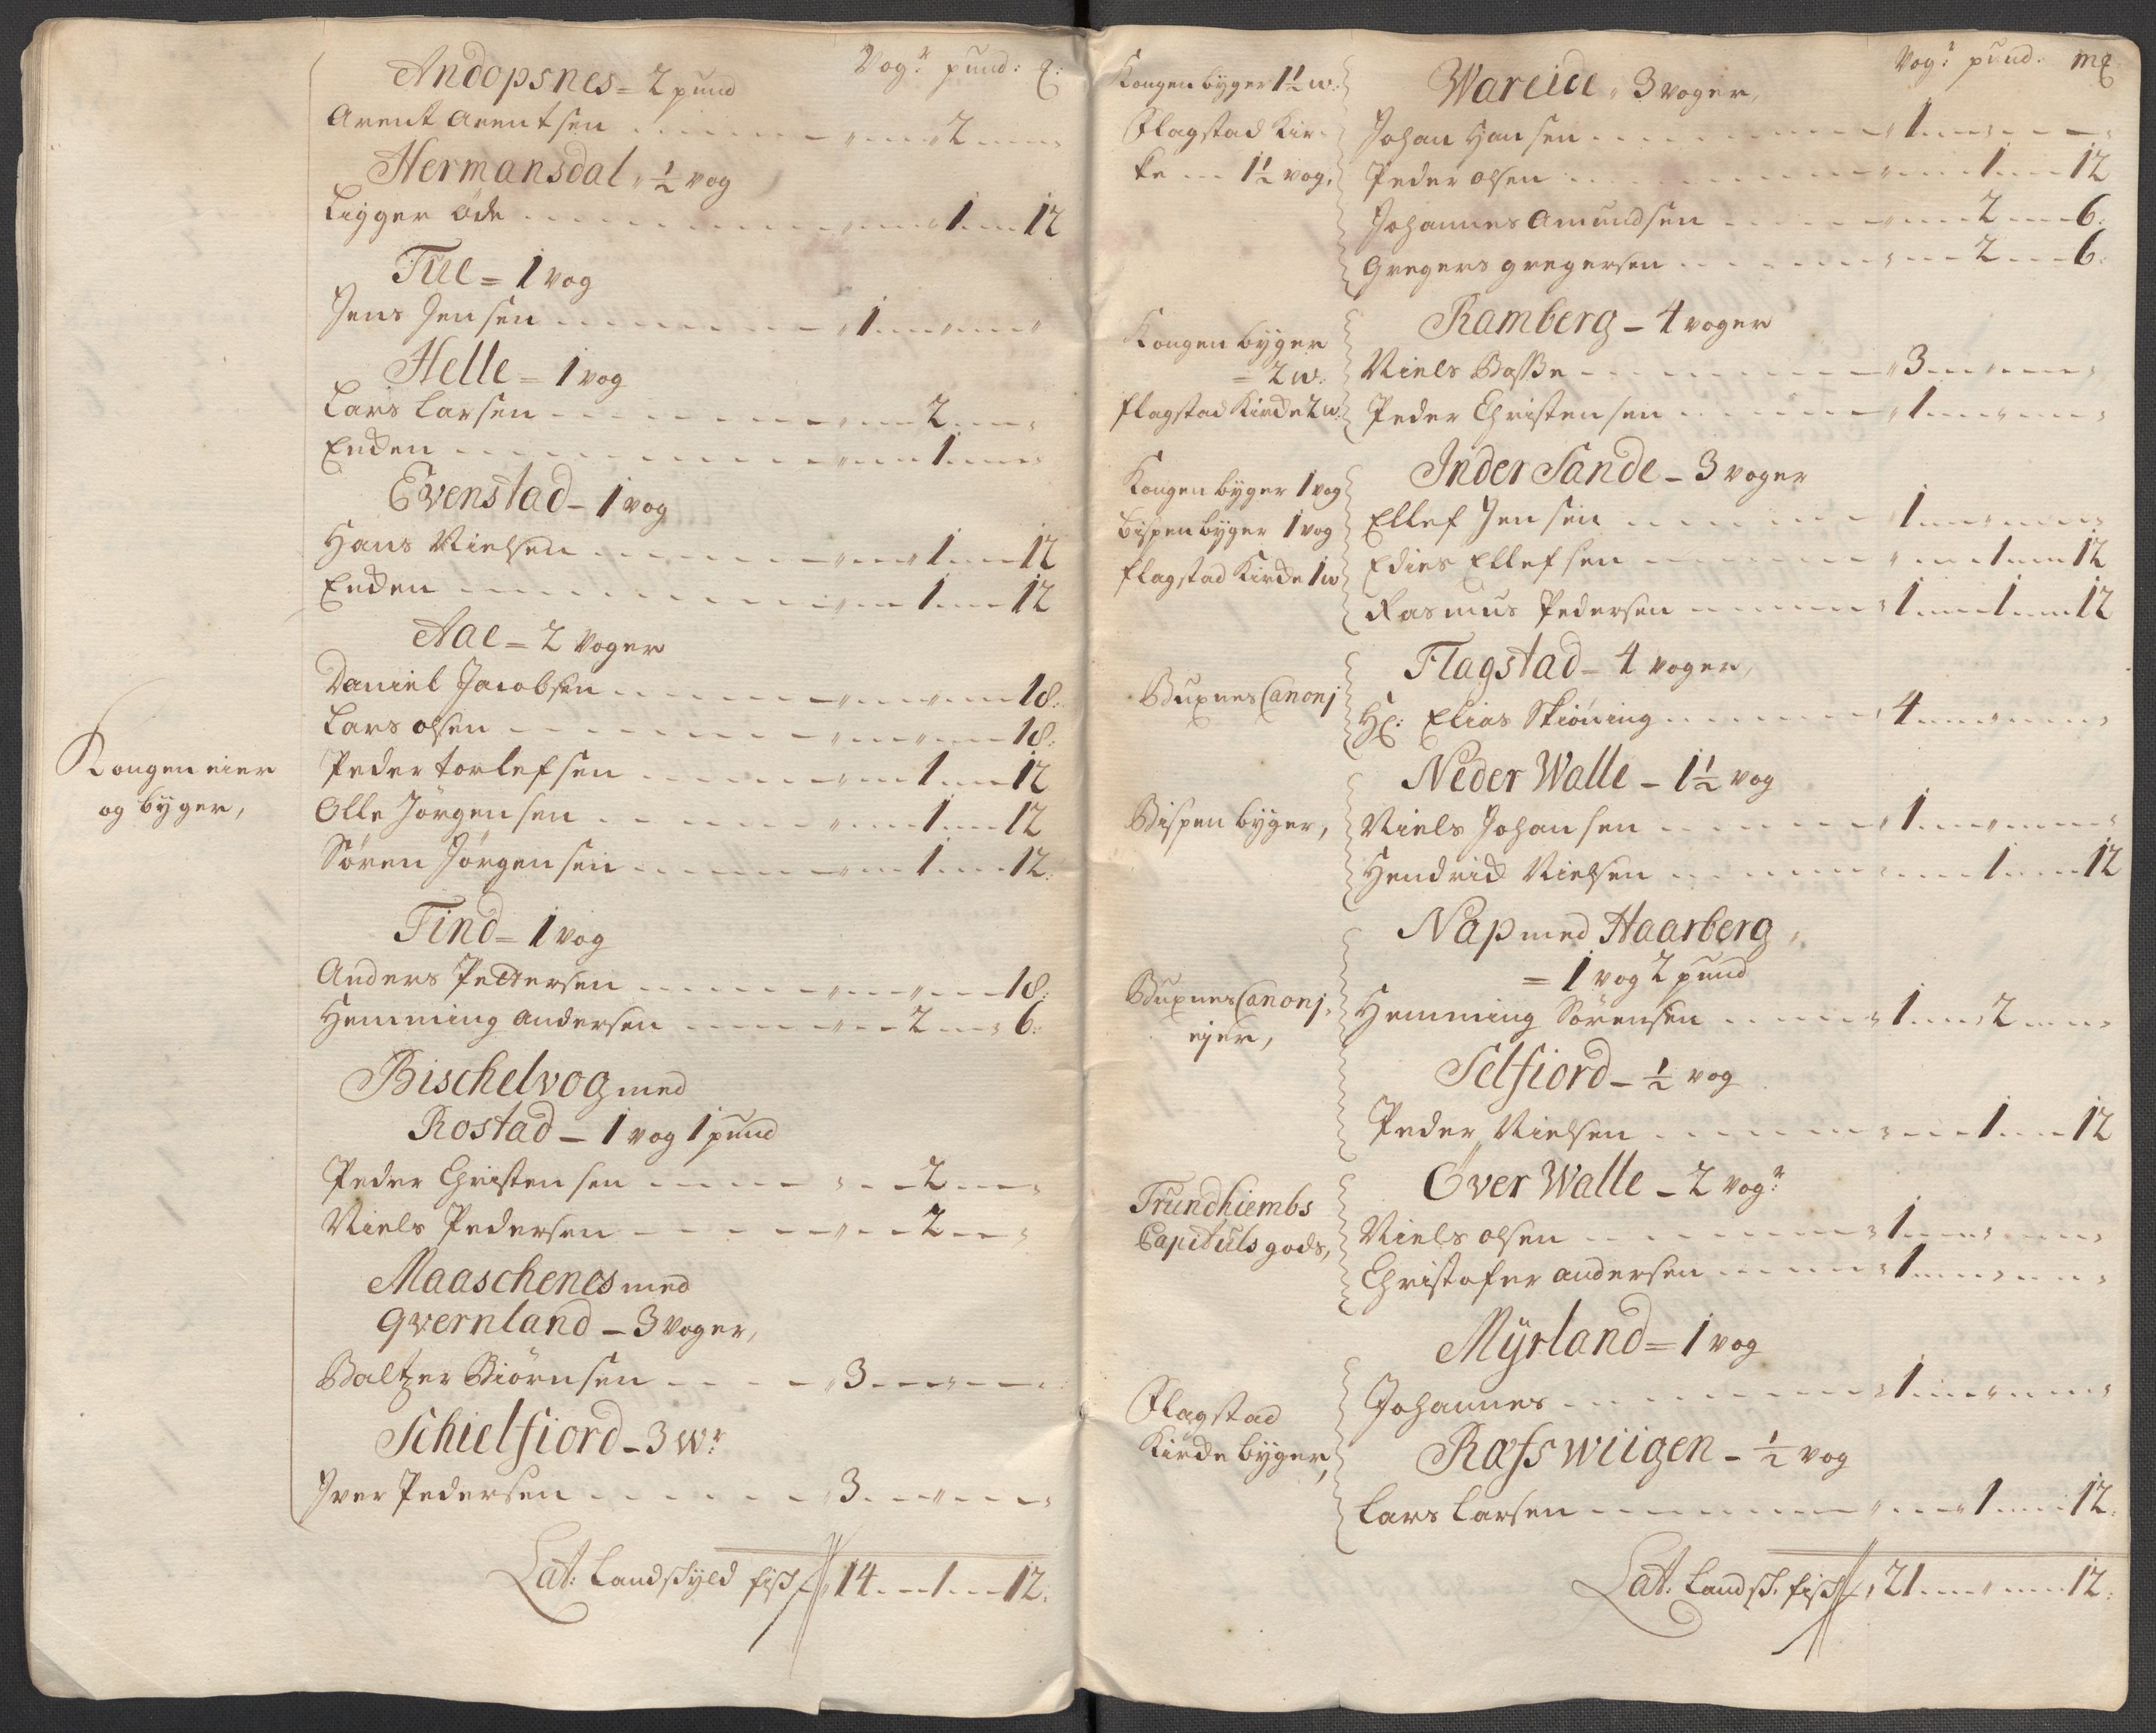 Vogr pund: ꝶ:
Andopsnes = 2 pund
Arent Arentsen 2
Hermansdal, ½ vog
Ligger öde 1 12
Tue = 1 vog
Jens Jensen 1
Helle = 1 vog
Lars Larsen 2
Encken 1
Evenstad - 1 vog
Hans Nielsen 1 12
Encken 1 12
Aae = 2 voger
Daniel Jacobsen 18:
Lars olsen 18:
Kongen eier
og byger,
Peder torlefsen 1 12
Olle Jörgensen 1 12
Sören Jörgensen 1 12:
Tind = 1 vog
Anders Pedersen 18:
Hemming andersen 2 6:
Bischelvog med
Rostad - 1 vog 1 pund
Peder Christensen 2
Niels Pedersen 2
Maaschenes med
qvernland - 3 voger,
Baltzer Biörnsen 3
Schielfiord - 3 Wr
Iver Pedersen 3
Lat: Landschyld fisch 14 1 12:
Vogr pund: mꝶ
Kongen byger 1½ w:
Flagstad Kir-
ke 1½ vog,
Wareide, 3 voger,
Johan Hansen 1
Peder olsen 1 12
Johannes Amundsen 2 6:
Gregers gregersen 2 6:
Kongen byger
= 2 w:
flagstad Kircke 2 w:
Ramberg - 4 voger
Niels Basse 3
Peder Christensen 1
Kongen byger 1 vog
bispen byger 1 vog
flagstad Kircke 1 w
Inder Sande - 3 voger
Ellef Jensen 1
Edies Ellefsen 1 12
Rasmus Pedersen 1 1 12
Buxnes Canonj
Flagstad - 4 voger,
Hr: Elias Skiöning 4
Bispen byger,
Neder Walle - 1½ vog
Niels Johansen 1
Hendrick Nielsen 1 12
Buxnes Canonj,
ejer,
Nap med Haarberg,
= 1 vog 2 pund
Hemming Sörensen 1 2
Selfiord - ½ vog
Peder Nielsen 1 12
Trundhiembs
Capituls gods,
Över Walle - 2 vogr
Niels olsen 1
Christofer andersen 1
Flagstad
Kircke byger,
Myrland = 1 vog
Johannes 1
Ræfs wiigen - ½ vog
Lars Larsen 1 12:
Lat: Landsch: fisch 21 12: